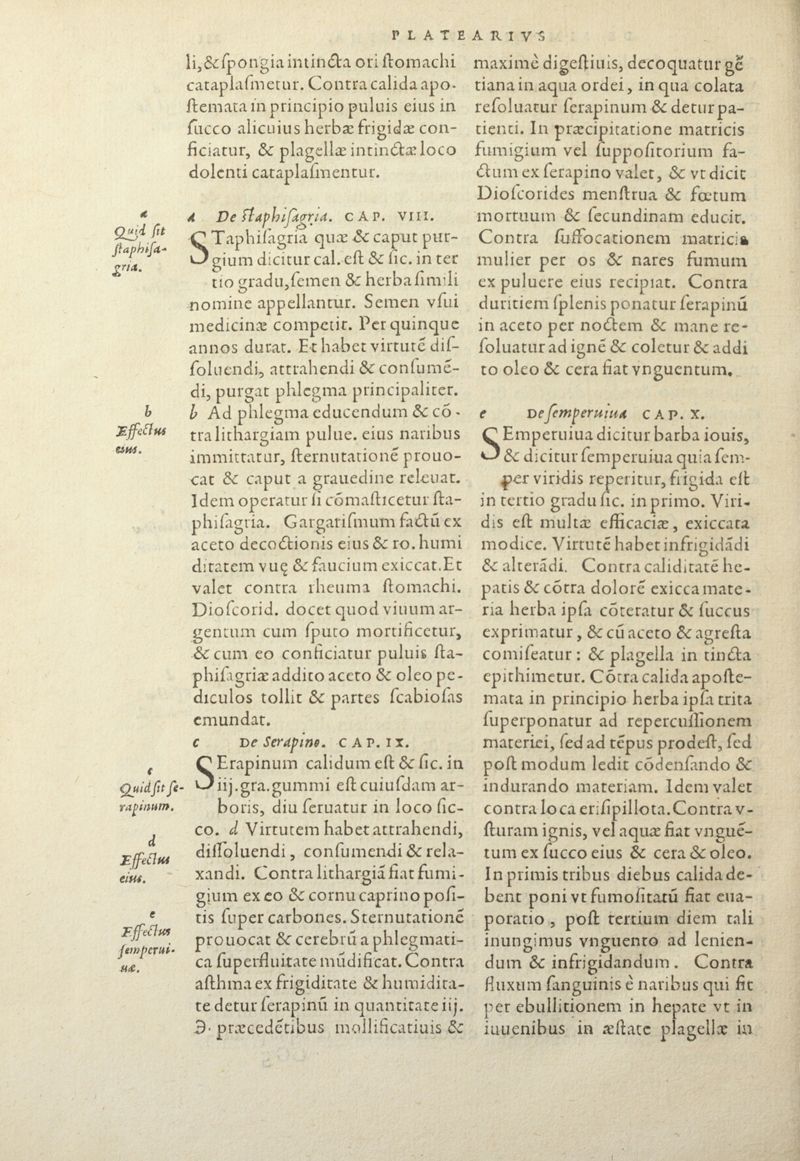 PLATEARIVS
li, &ſpongia intincta ori ſtomachi
cataplaſmetur. Contra calida apo-
ſtemata in principio puluis eius in
ſucco alicuius herbæ frigidæ con-
ficiatur, & plagellæ intinctæ loco
dolenti cataplaſmentur.
a
Quid ſit
ſtaphiſa-
gria.
a De ſtaphiſagria. CAP. VIII.
STaphiſagria quæ & caput pur-
gium dicitur cal. eſt & ſic. in ter
tio gradu, ſemen & herba ſimili
nomine appellantur. Semen vſui
medicinæ competit. Per quinque
annos durat. Et habet virtutē diſ-
ſoluendi, attrahendi & conſumē-
di, purgat phlegma principaliter.
b
Effectus
eius.
b Ad phlegma educendum & cō-
tra lithargiam pulue. eius naribus
immittatur, ſternutationē prouo-
cat & caput a grauedine releuat.
Idem operatur ſi cōmaſticetur ſta-
phiſagria. Gargariſmum factū ex
aceto decoctionis eius & ro. humi
ditatem vuę & faucium exiccat. Et
valet contra rheuma ſtomachi.
Dioſcorid. docet quod viuum ar-
gentum cum ſputo mortificetur,
& cum eo conficiatur puluis ſta-
phiſagriæ addito aceto & oleo pe-
diculos tollit & partes ſcabioſas
emundat.
c De Serapino. CAP. IX.
c
Quid ſit ſe-
rapinum.
SErapinum calidum eſt & ſic. in
iij. gra. gummi eſt cuiuſdam ar-
boris, diu ſeruatur in loco ſic-
co. d Virtutem habet attrahendi,
d
Effectus
eius.
diſſoluendi, conſumendi & rela-
xandi. Contra lithargiā fiat fumi-
gium ex eo & cornu caprino poſi-
tis ſuper carbones. Sternutationē
e
Effectus
ſemperui-
uæ.
prouocat & cerebrū a phlegmati-
ca ſuperfluitate mūdificat. Contra
aſthma ex frigiditate & humidita-
te detur ſerapinū in quantitate iij.
℈. præcedētibus mollificatiuis &
maximè digeſtiuis, decoquatur gē
tiana in aqua ordei, in qua colata
reſoluatur ſerapinum & detur pa-
tienti. In præcipitatione matricis
fumigium vel ſuppoſitorium fa-
ctum ex ſerapino valet, & vt dicit
Dioſcorides menſtrua & fœtum
mortuum & ſecundinam educit.
Contra ſuffocationem matricis
mulier per os & nares fumum
ex puluere eius recipiat. Contra
duritiem ſplenis ponatur ſerapinū
in aceto per noctem & mane re-
ſoluatur ad ignē & coletur & addi
to oleo & cera fiat vnguentum.
e De ſemperuiua CAP. X.
SEmperuiua dicitur barba iouis,
& dicitur ſemperuiua quia ſem-
per viridis reperitur, frigida eſt
in tertio gradu ſic. in primo. Viri-
dis eſt multæ efficaciæ, exiccata
modice. Virtutē habet infrigidādi
& alterādi. Contra caliditatē he-
patis & cōtra dolorē ex ſicca mate-
ria herba ipſa cōteratur & ſuccus
exprimatur, & cū aceto & agreſta
comiſeatur: & plagella in tincta
epithimetur. Cōtra calida apoſte-
mata in principio herba ipſa trita
ſuperponatur ad repercuſſionem
materiei, ſed ad tēpus prodeſt, ſed
poſt modum ledit cōdenſando &
indurando materiam. Idem valet
contra loca eriſipillota. Contra v-
ſturam ignis, vel aquæ fiat vnguē-
tum ex ſucco eius & cera & oleo.
In primis tribus diebus calida de-
bent poni vt fumoſitatū fiat eua-
poratio, poſt tertium diem tali
inungimus vnguento ad lenien-
dum & infrigidandum. Contra
fluxum ſanguinis è naribus qui fit
per ebullitionem in hepate vt in
iuuenibus in æſtate plagellæ in